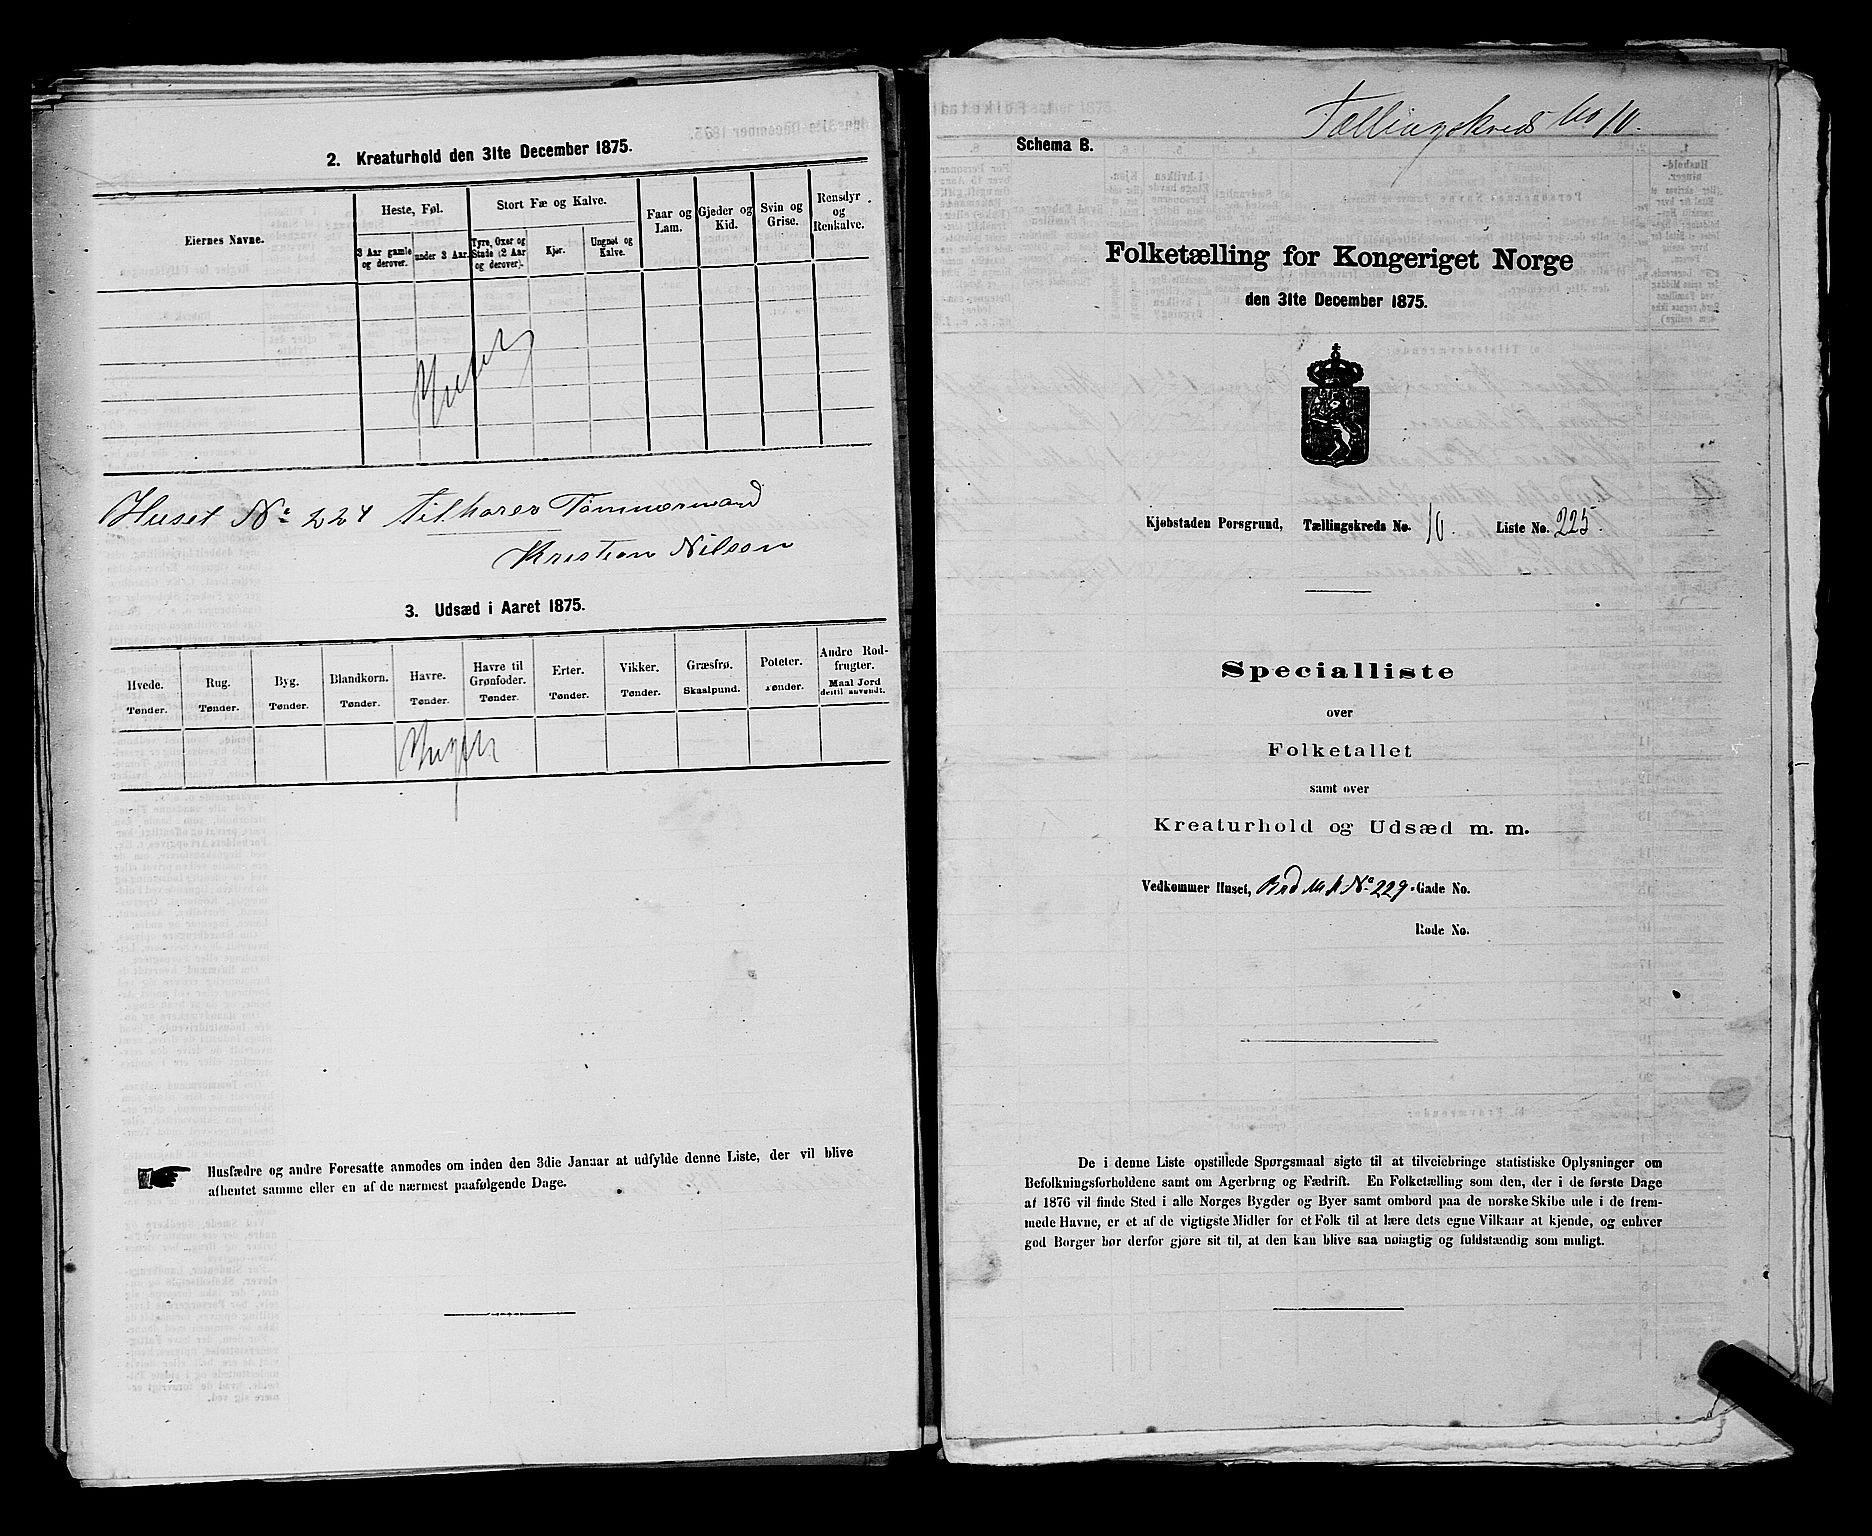 2. Kreaturhold den 31te December 1875.
Eiernes Navne.
Heste, Føl.
Stort Fæ og Kalve.
Faar og Lam.
Gjeder og Kid.
Svin og Grise.
Rensdyr og Renkalve.
3 Aar gamle og derover.
under 3 Aar.
Tyre, Oxer og Stude (2 Aar og derover).
Kjør.
Ungnøt og Kalve.
Huset No 224 tilhører Tømmermand
Kristian Nilsen
3. Udsæd i Aaret 1875.
Hvede. Tønder.
Rug. Tønder.
Byg. Tønder.
Blandkorn. Tønder.
Havre. Tønder.
Havre til Grønfoder. Tønder.
Erter. Tønder.
Vikker. Tønder.
Græsfrø. Skaalpund.
Poteter. Tønder.
Andre Rodfrugter. Maal Jord dertil anvendt.
Husfædre og andre Foresatte anmodes om inden den 3die Januar at udfylde denne Liste, der vil blive
afhentet samme eller en af de nærmest paafølgende Dage.
Tællingskreds No 10.
Schema B.
Folketælling for Kongeriget Norge
den 31te December 1875.
Kjøbstaden Porsgrund, Tællingskreds No. 10. Liste No. 225.
Specialliste
over
Folketallet
samt over
Kreaturhold og Udsæd m. m.
Vedkommer Huset, No 229. Gade No.
Rode No.
De i denne Liste opstillede Spørgsmaal sigte til at tilveiebringe statistiske Oplysninger om
Befolkningsforholdene samt om Agerbrug og Fædrift. En Folketælling som den, der i de første Dage
af 1876 vil finde Sted i alle Norges Bygder og Byer samt ombord paa de norske Skibe ude i de frem-
mede Havne, er et af de vigtigste Midler for et Folk til at lære dets egne Vilkaar at kjende, og enhver
god Borger bør derfor gjøre sit til, at den kan blive saa nøiagtig og fuldstændig som muligt.